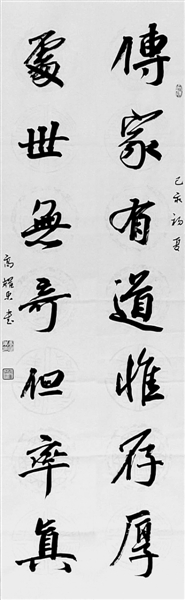 傳家有道惟存厚
處世無奇但率真
己亥初夏
高耀忠書